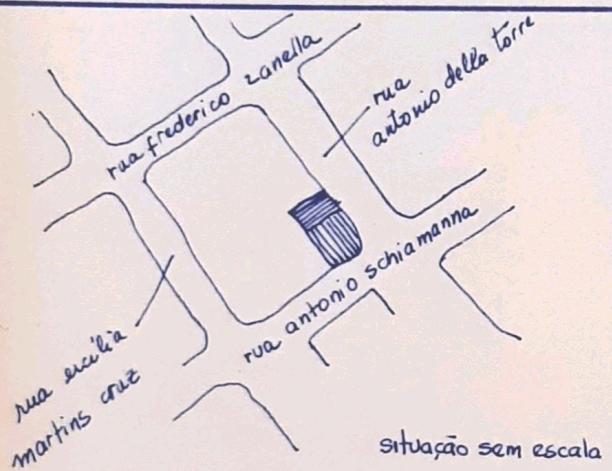 rua frederico zanella
rua
antonio della torre
rua antonio schiamanna
rua ercília
martins cruz
situação sem escala